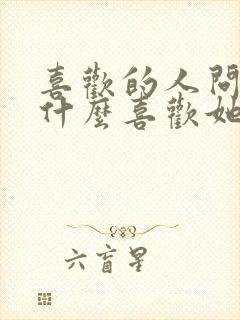 喜歡的人問
什麼喜歡她
六盲星